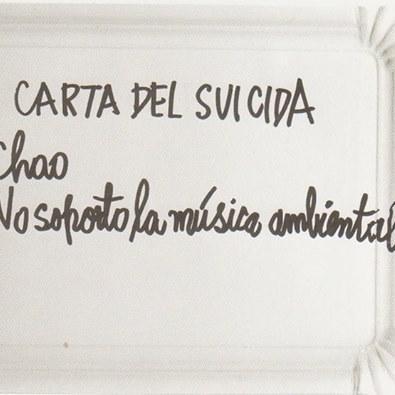 CARTA DEL SUICIDA
Chao
No soporto la música ambiental